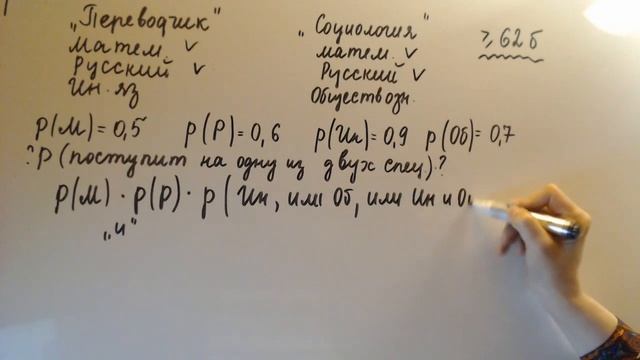 „Переводчик"
матем. v
Русский v
Ин. яз
„Социология"
матем. v
Русский v
Обществозн.
≥ 62 б
p(М) = 0,5 p(Р) = 0,6 p(Ин) = 0,9 p(Об) = 0,7
? P(поступит на одну из двух спец)?
p(М) · p(Р) · p(Ин, или Об, или Ин и О
„и"